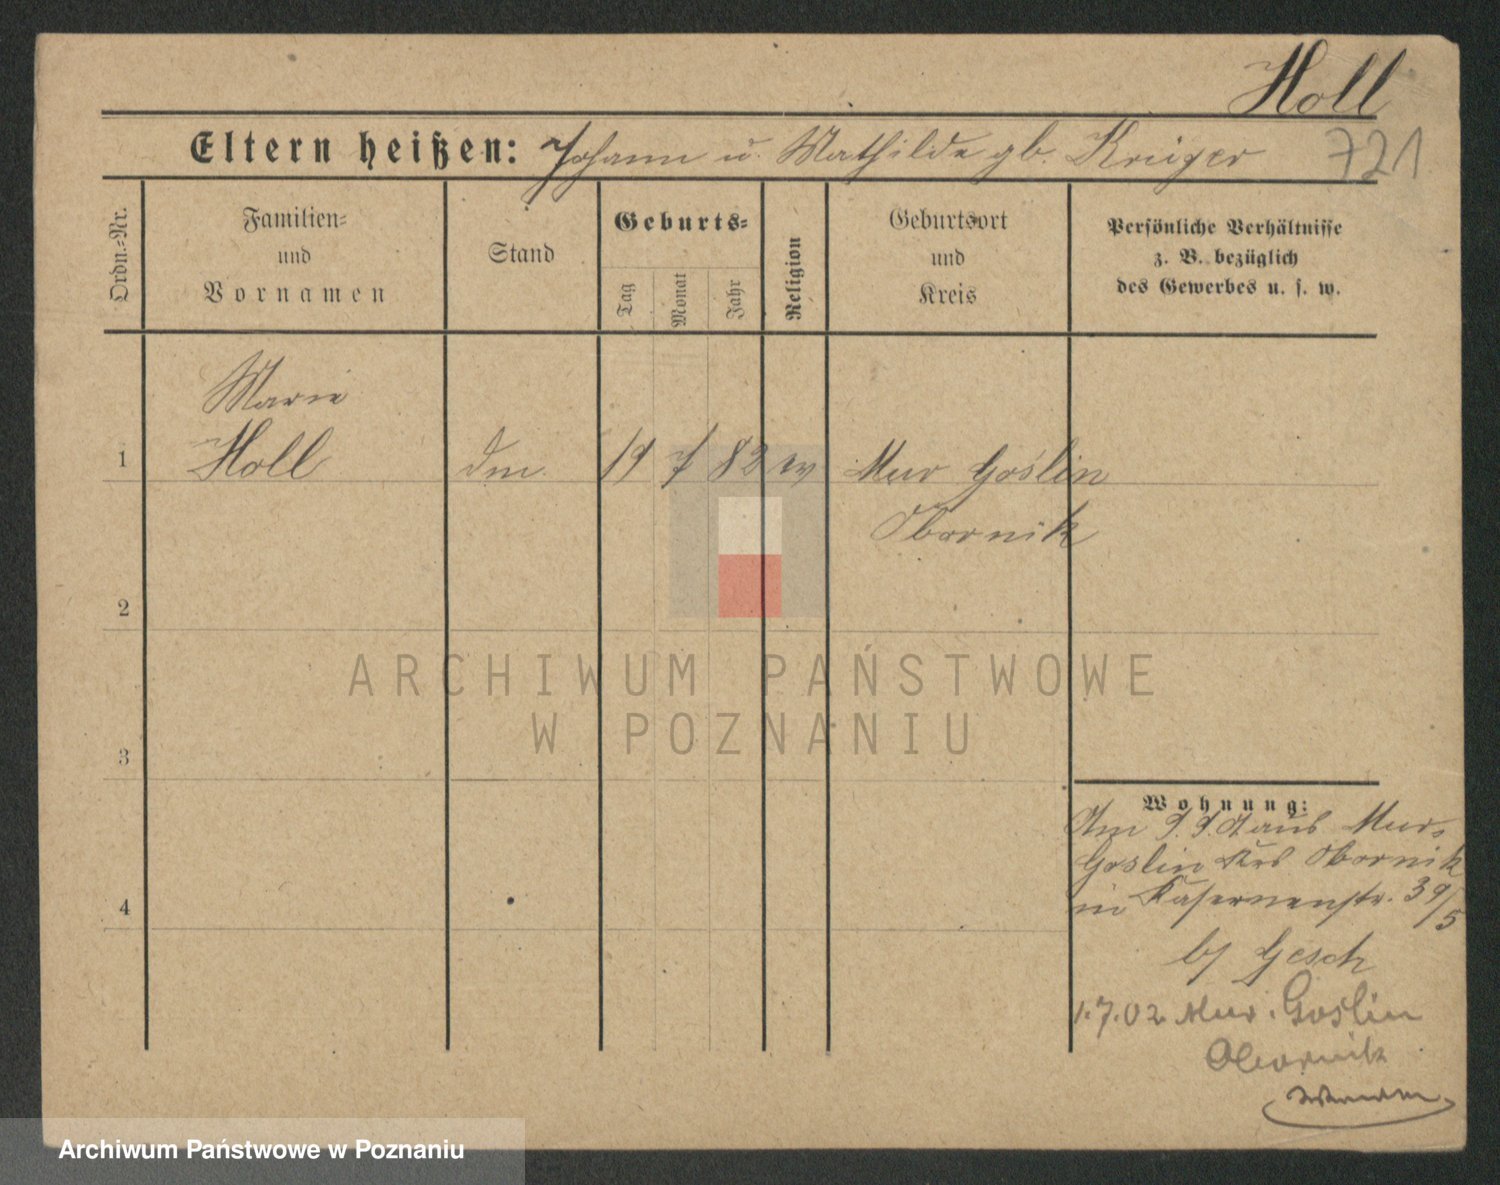 Holl
Eltern heißen: Johann u. Mathilde gb. Krüger
721
Ordn.=Nr.
Familien=
und
Vornamen
Stand
Geburts=
Tag
Monat
Jahr
Religion
Geburtsort
und
Kreis
Persönliche Verhältnisse
z. B. bezüglich
des Gewerbes u. s. w.
Marie
1 Holl 19 7 82 Mur Goslin
Obornik
2
ARCHIWUM PAŃSTWOWE
W POZNANIU
3
Wohnung:
aus Mur.
Goslin Krs Obornik
in Kasernenstr. 39/5
b/ Gesch
1.7.02 Mur. Goslin
Obornik
4
Archiwum Państwowe w Poznaniu